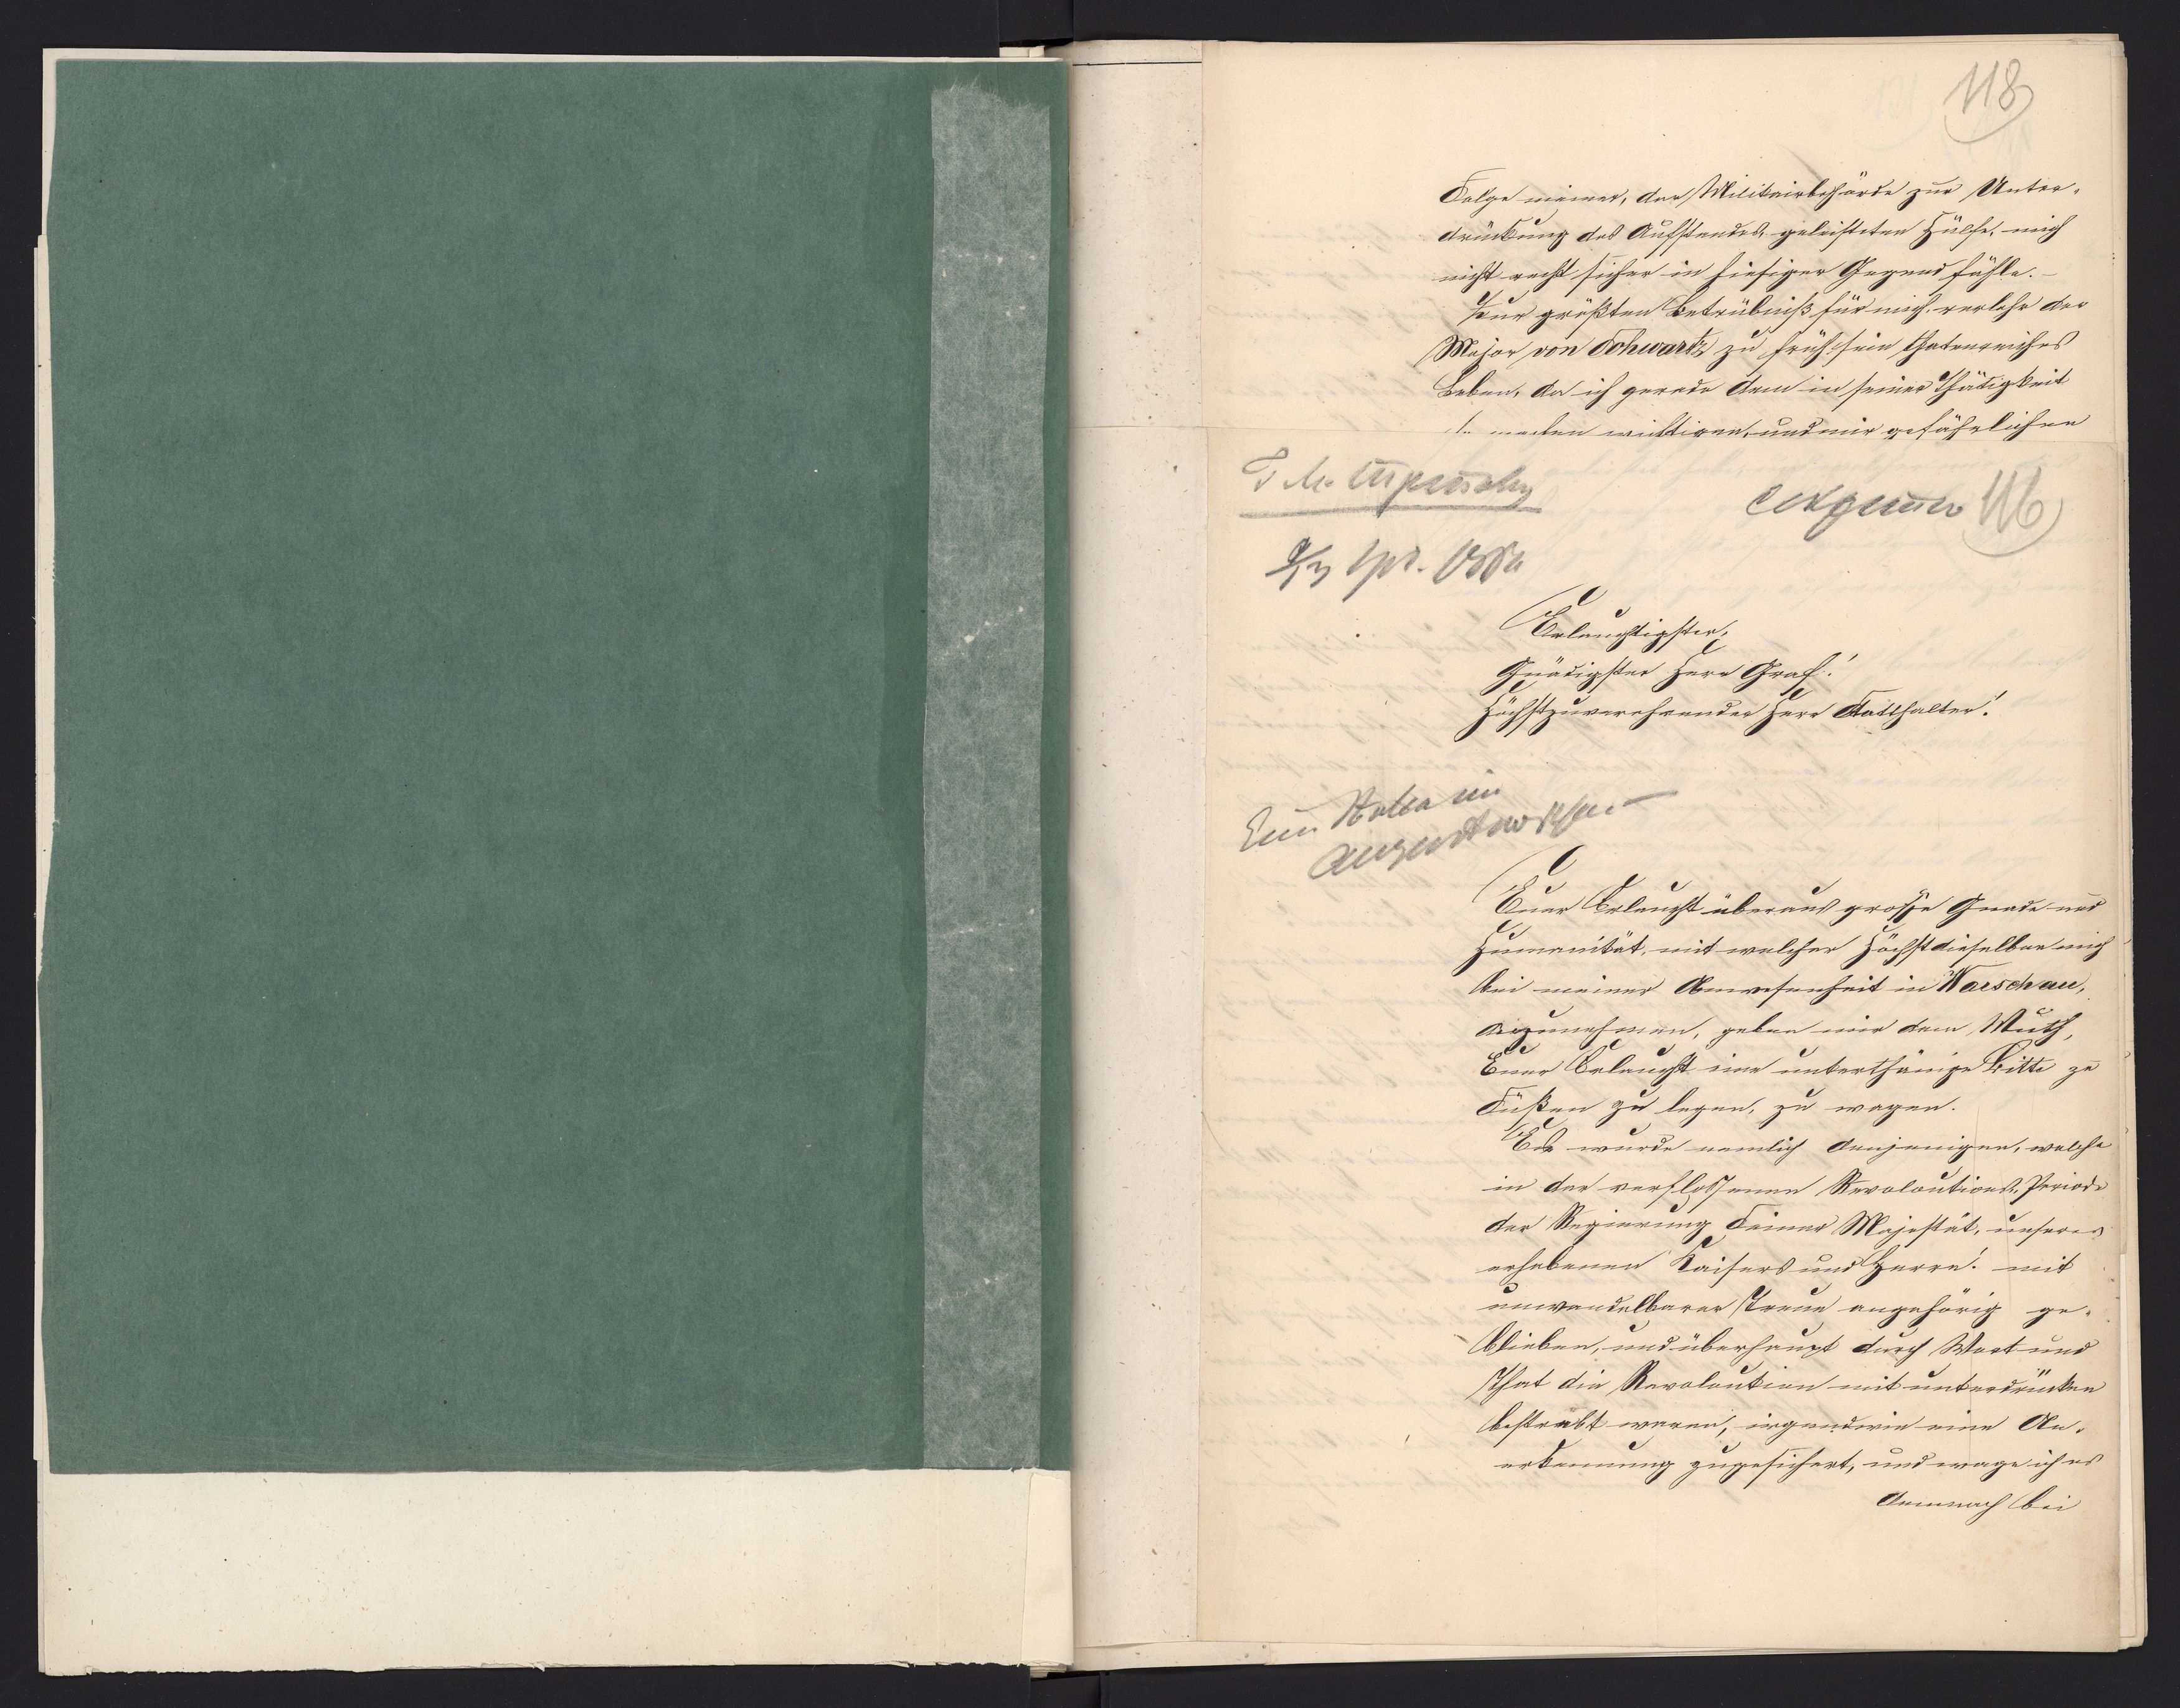 118
Folge meiner, der Militairbehörde zur Unter-
drückung des Aufstandes geleisteten Hülfe, mich
nicht recht sicher in hiesiger Gegend fühle.-
Zur größten Betrübniß für mich verlohr der
Major von Schwartz zu früh sein thatenreiches
Leben, da ich gerade dem in seiner Thätigkeit
wichtigen, und mir gefährlichen
секретно 116
Erlauchtigster,
Gnädigster Herr Graf!
Höchstzuverehrender Herr Statthalter!
Euer Erlaucht überaus große Gnade und
Humanität, mit welcher Höchstdieselben mich
bei meiner Anwesenheit in Warschau,
anzunehmen, geben mir den Muth,
Euer Erlaucht eine unterthänige Bitte zu
Füßen zu legen, zu wagen.
Es wurde nemlich denjenigen, welche
in der verfloßenen Revoloutions-Periode
der Regierung Seiner Majestät, unseres
erhabenen Kaisers und Herrn! mit
unwandelbarer Treue angehörig ge-
blieben, und überhaupt durch Wort und
That die Revoloution mit unterdrücken
bestrebt waren, irgendwie eine An-
erkennung zugesichert, und wage ich es
demnach bei